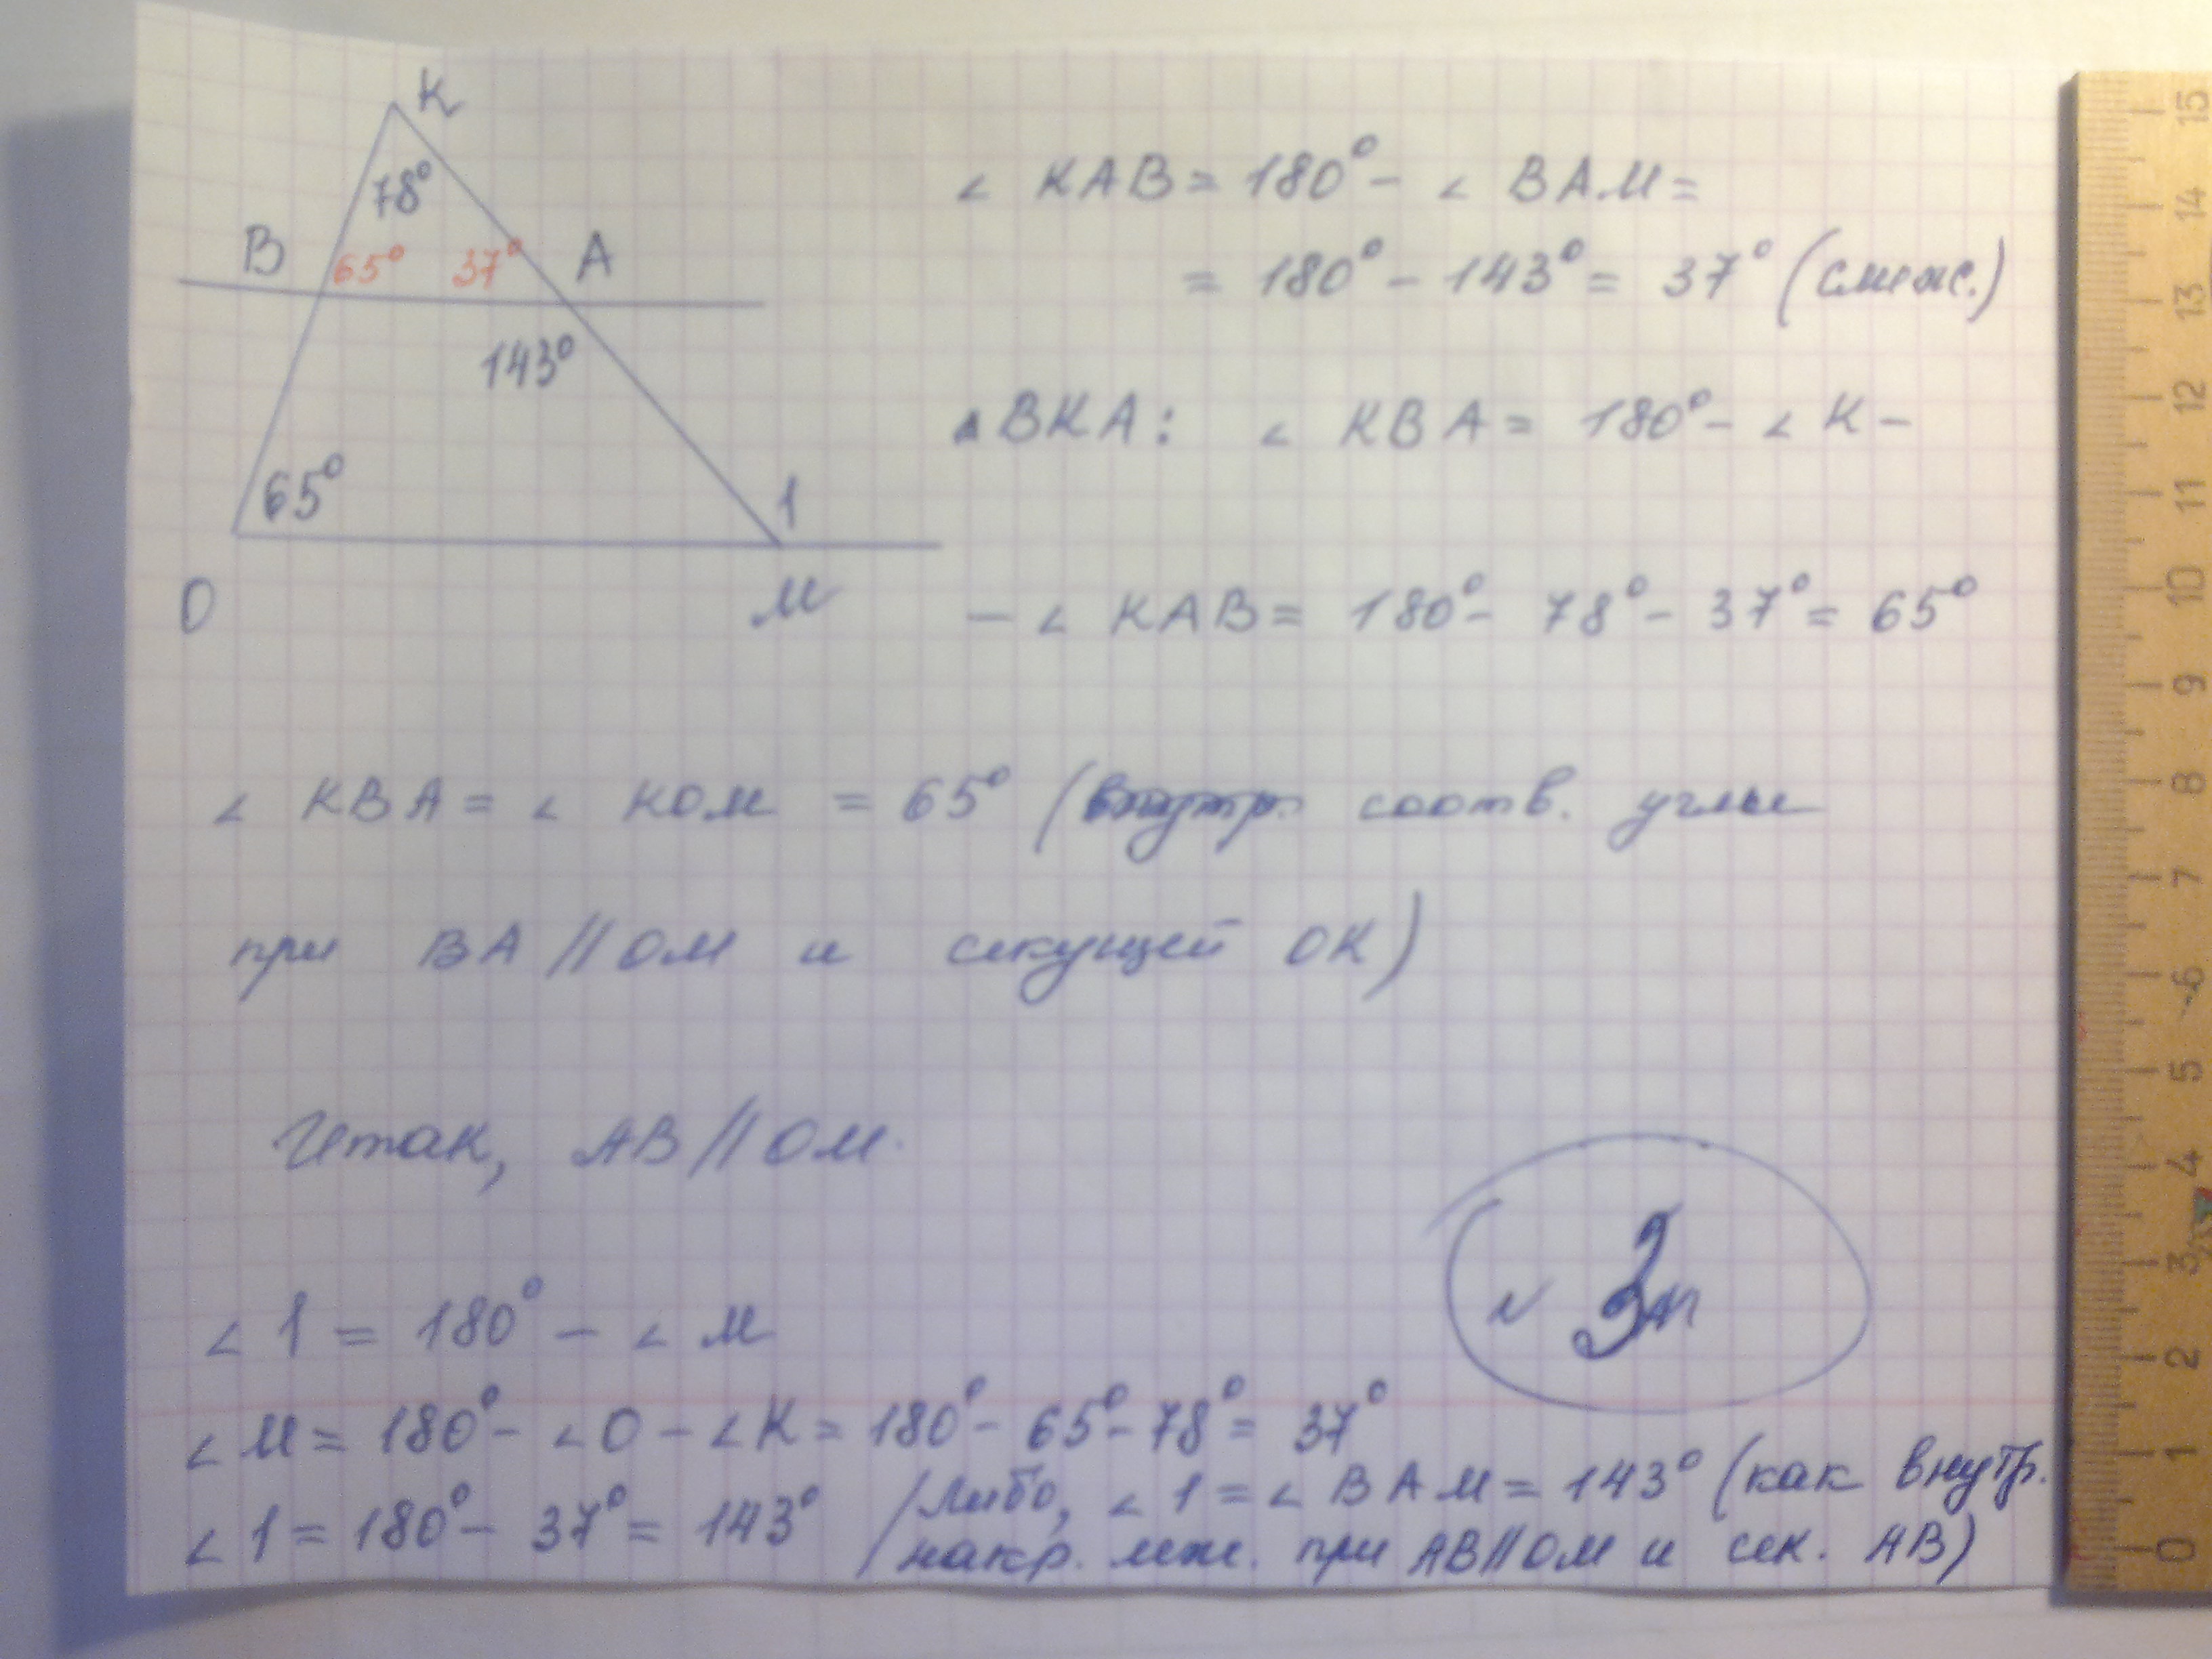 K
78°
B 65° 37° A
143°
65° 1
O M
∠ KAB = 180° - ∠ BAM =
= 180° - 143° = 37° (смеж.)
▲BKA: ∠ KBA = 180° - ∠ K -
- ∠ KAB = 180° - 78° - 37° = 65°
∠ KBA = ∠ KOM = 65° (внутр. соотв. углы
при BA // OM и секущей OK)
Итак, AB // OM.
∠ 1 = 180° - ∠ M
∠ M = 180° - ∠ O - ∠ K = 180° - 65° - 78° = 37°
∠ 1 = 180° - 37° = 143°
/Либо, ∠ 1 = ∠ BAM = 143° (как внутр.
накр. леж. при AB // OM и сек. AB)
15
14
13
12
11
10
9
8
7
6
5
4
3
2
1
0